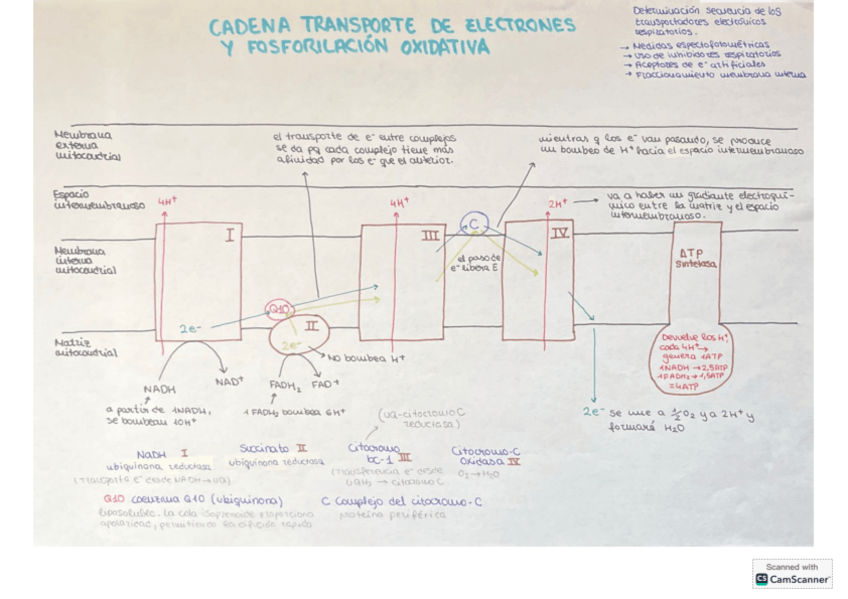 CADENA TRANSPORTE DE ELECTRONES
Y FOSFORILACIÓN OXIDATIVA
Determinación secuencia de los
transportadores electrónicos
respiratorios.
→ Medidas espectofotométricas
→ Uso de inhibidores respiratorios
→ Aceptores de e⁻ artificiales
→ Fraccionamiento membrana interna
Membrana
externa
mitocondrial
el transporte de e⁻ entre complejos
se da pq cada complejo tiene más
afinidad por los e⁻ que el anterior.
mientras q los e⁻ van pasando, se produce
un bombeo de H⁺ hacia el espacio intermembranoso
Espacio
intermembranoso
4H⁺
4H⁺
2H⁺
va a haber un gradiante electroquí-
mico entre la matriz y el espacio
intermembranoso.
I
III
C
IV
Membrana
interna
mitocondrial
el paso de
e⁻ libera E
ATP
Sintetasa
Q10
2e⁻
II
2e⁻
Matriz
mitocondrial
No bombea H⁺
Devuelve los H⁺
cada 4H⁺→
genera 1ATP
1NADH→2,5ATP
1FADH₂→1,5ATP
=4ATP
NADH
NAD⁺
FADH₂
FAD⁺
a partir de 1NADH,
se bombean 10H⁺
1 FADH₂ bombea 6H⁺
(UQ-citocromo C
reductasa)
2e⁻ se une a ½O₂ y a 2H⁺ y
formará H₂O
NADH I
ubiquinona reductasa
(Transporta e⁻ desde NADH→UQ)
Succinato II
ubiquinona reductasa
Citocromo
bc-1 III
(transferencia e⁻ desde
UQH₂ → citocromo C
Citocromo-C
Oxidasa IV
O₂→H₂O
Q10 coenzima Q10 (ubiquinona)
liposoluble. La cola isoprenoide proporciona
apolaridad, permitiendo la difusión rápida
C Complejo del citocromo-C
proteína periférica
Scanned with
CS CamScanner